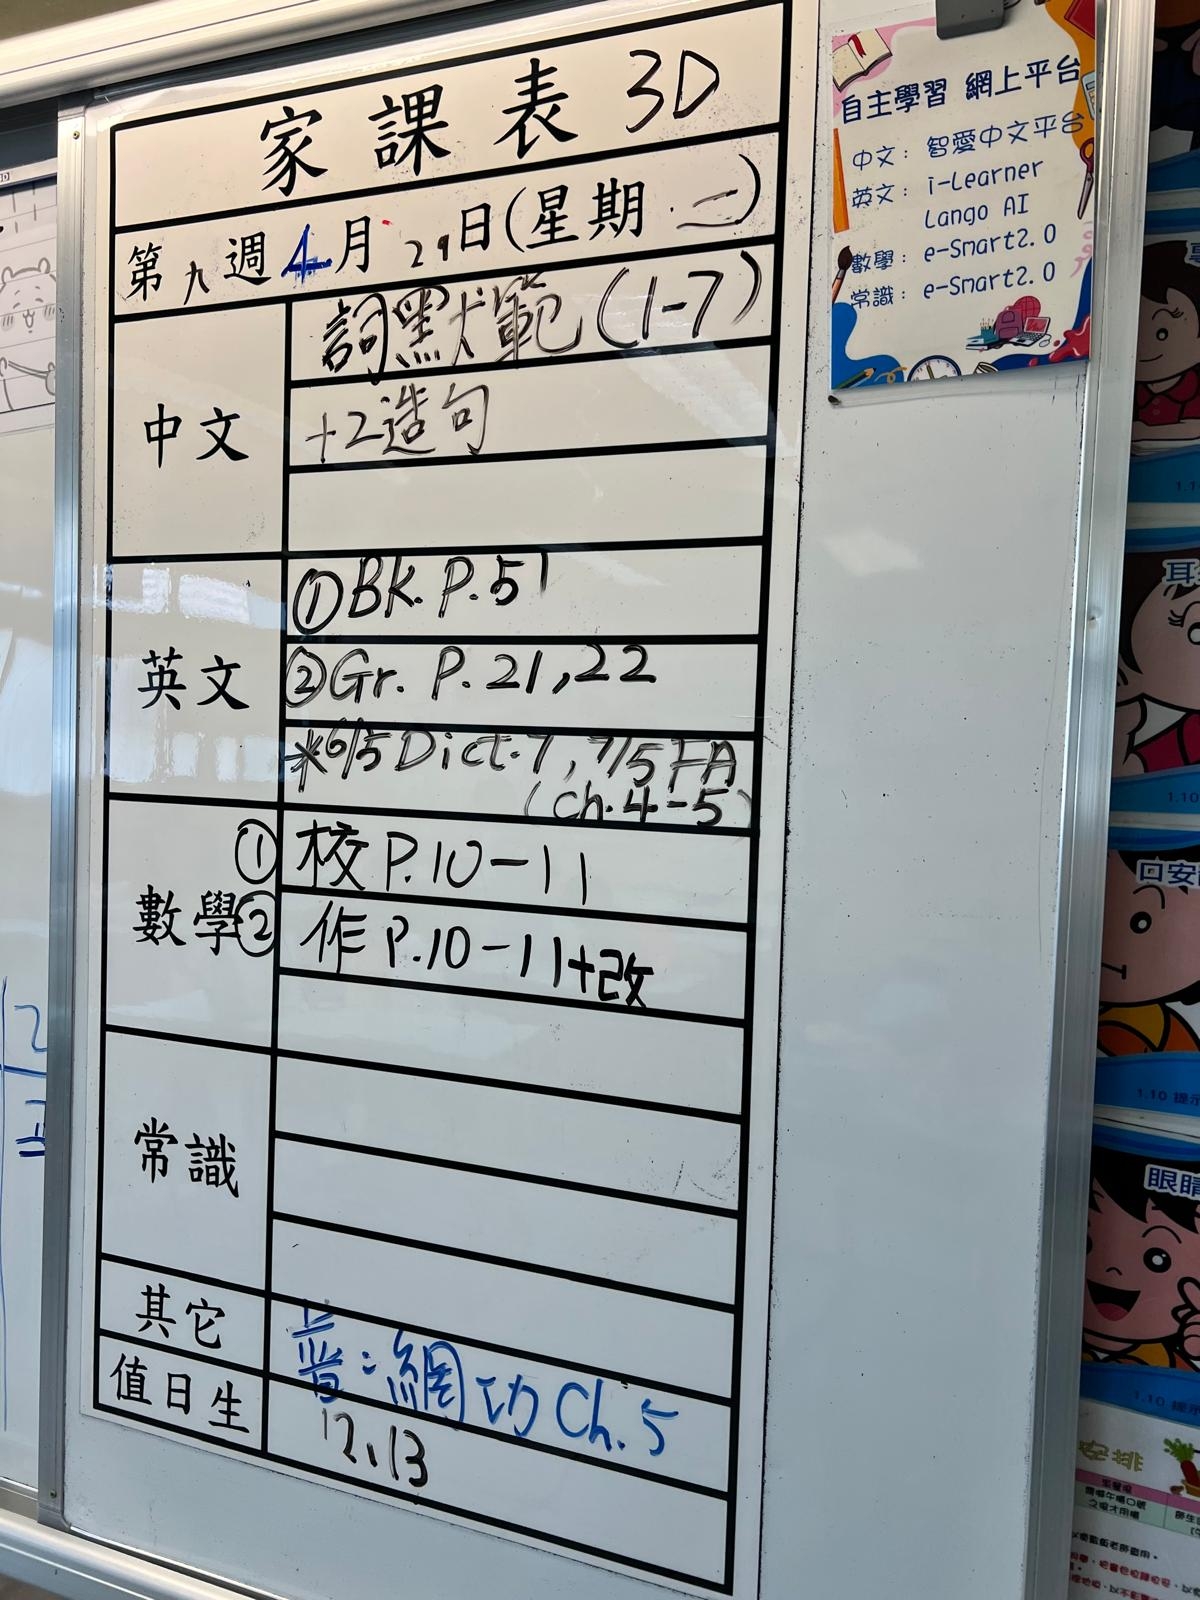 家課表 3D
第九週 4月29日(星期二)
中文
詞默範(1-7)
+2造句
英文
①BK. P.51
②Gr. P.21,22
*6/5 Dict.7, 7/5 FA
(Ch.4-5)
數學
① 校P.10-11
② 作P.10-11+改
常識
其它
普:網功Ch.5
值日生
12,13
自主學習 網上平台
中文: 智愛中文平台
英文: i-Learner
Lango AI
數學: e-Smart2.0
常識: e-Smart2.0
耳
1.10
口安
1.10 提示
眼睛
1.10 提示